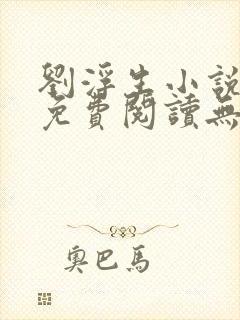 劉浮生小說
免費閱讀無
奧巴馬